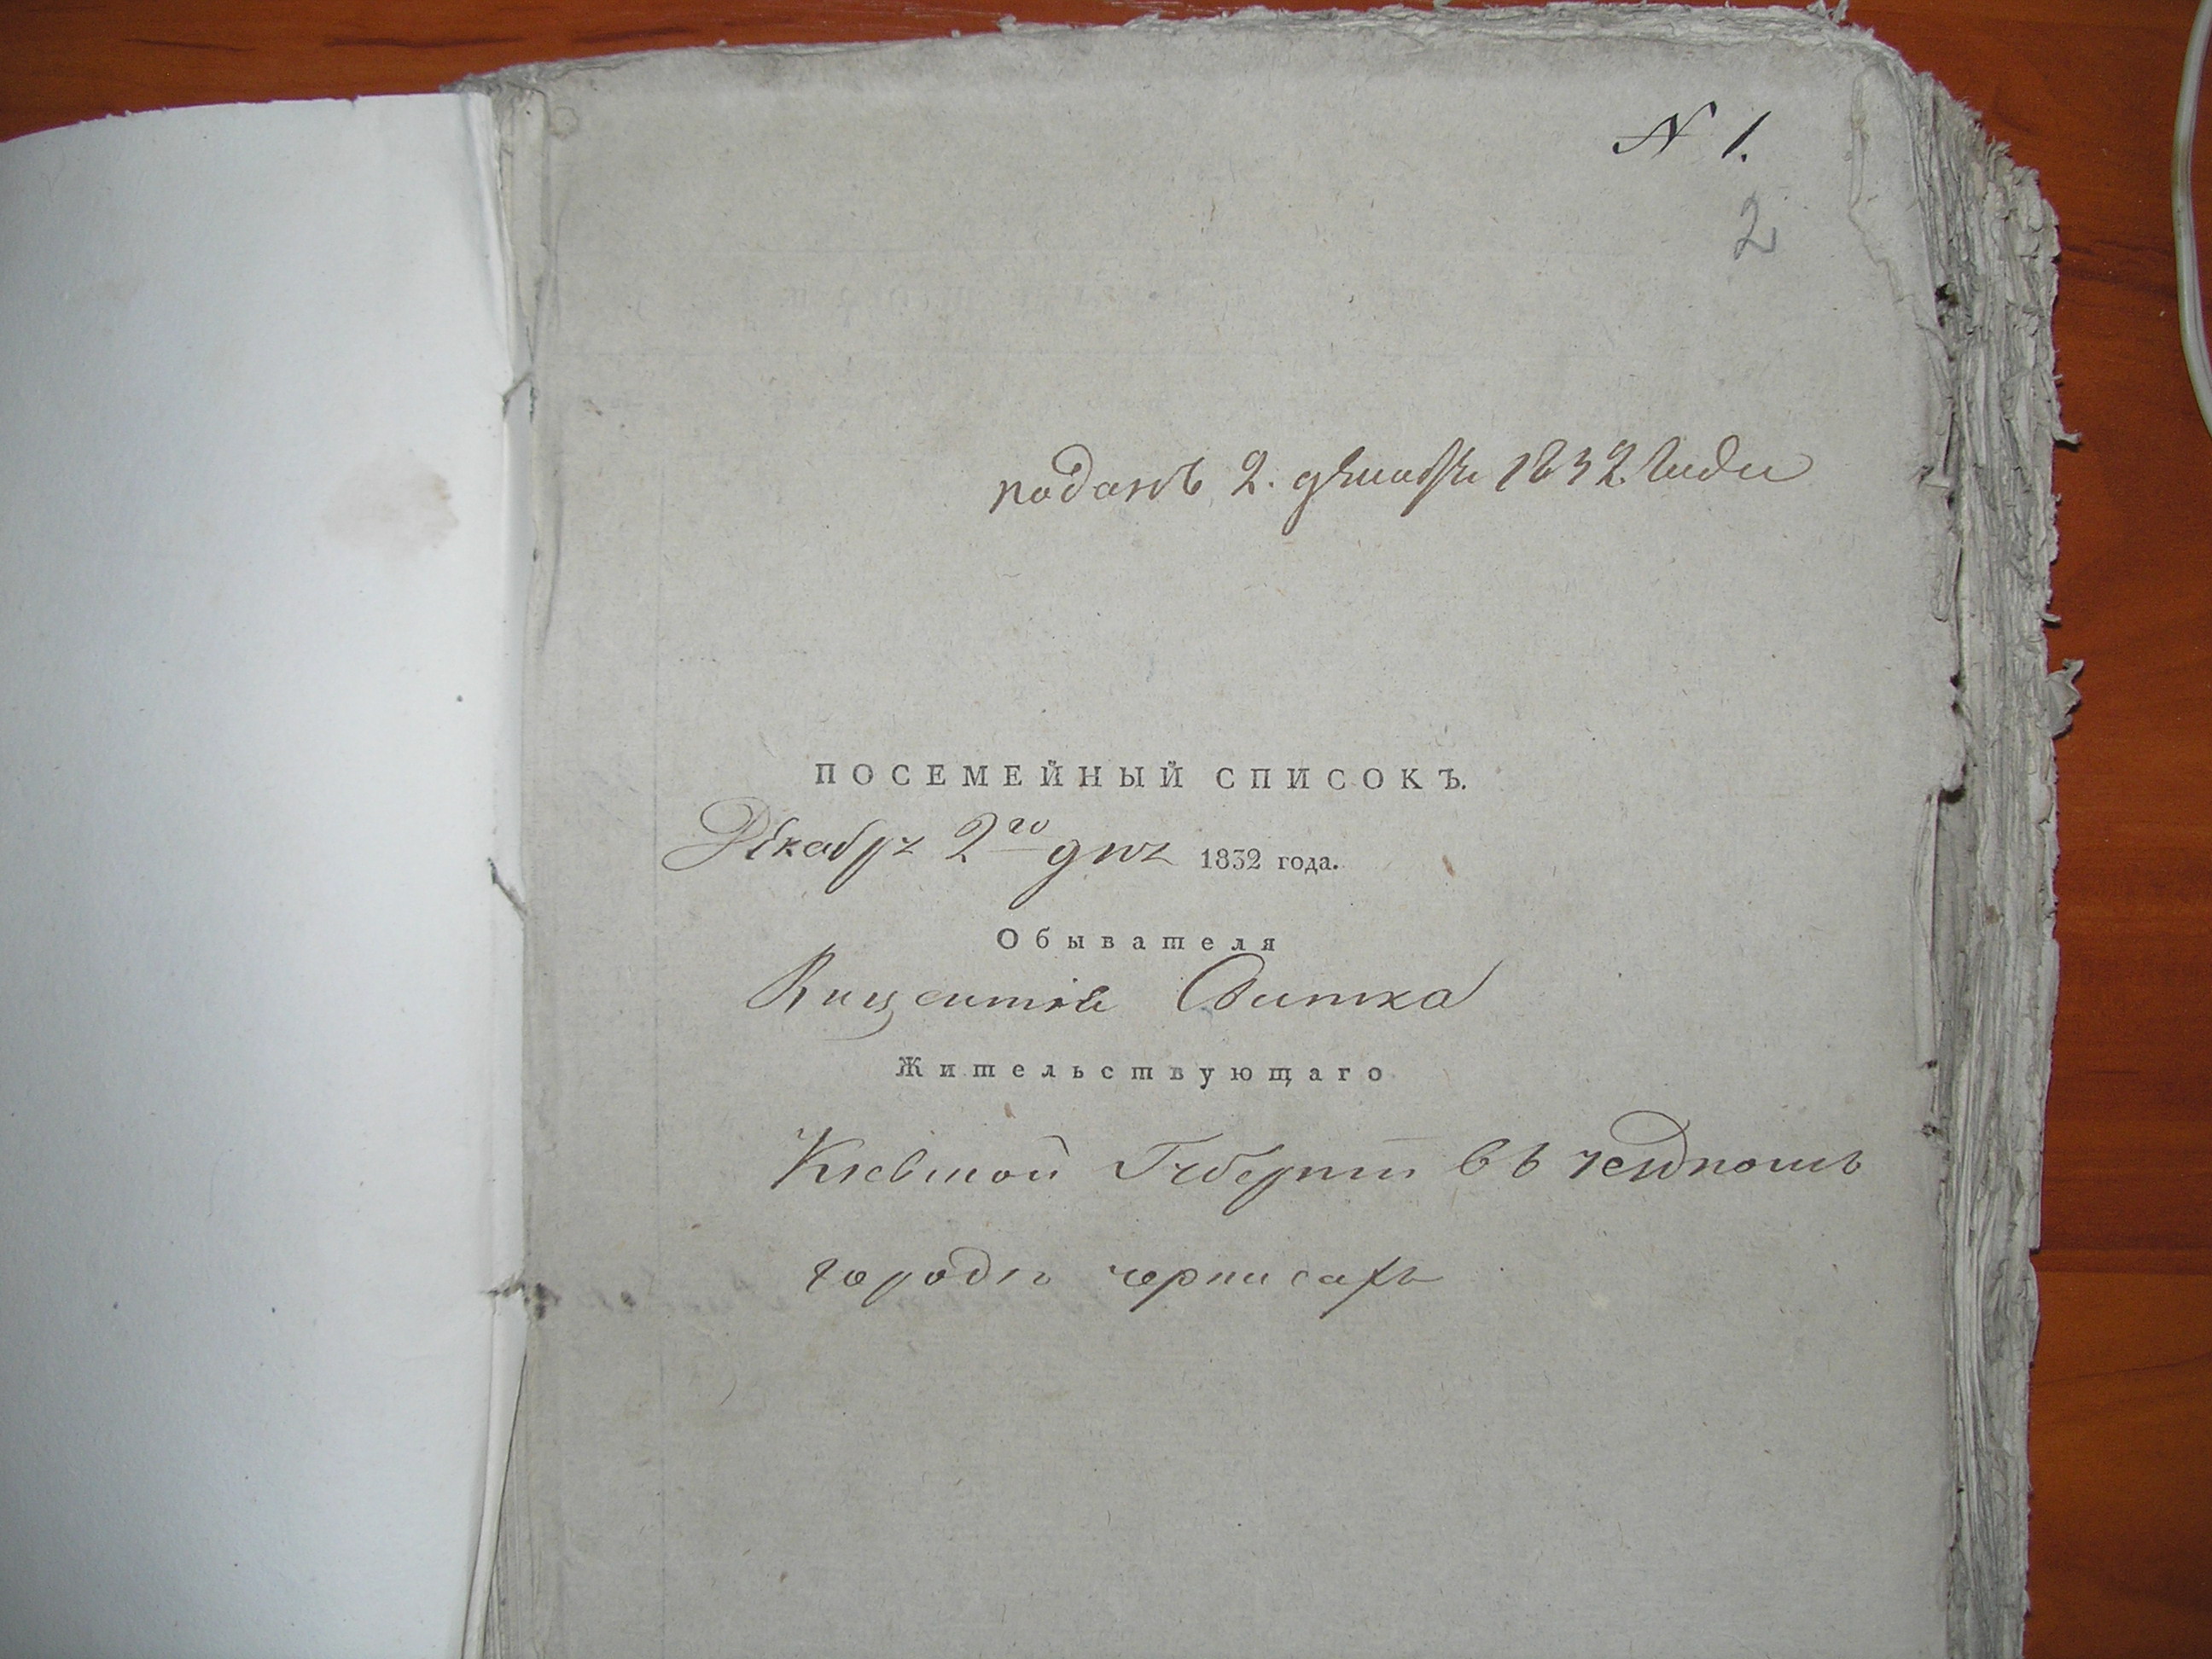 N 1.
2
поданъ 2. декабря 1832. года
ПОСЕМЕЙНЫЙ СПИСОКЪ.
Декабря 2го дня 1832 года.
Обывателя
Викентія Свитка
Жительствующаго
Кіевской Губерніи въ
городѣ